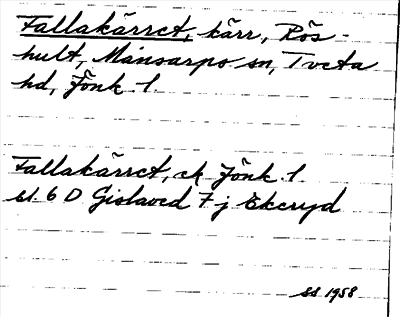 Fallakärret, kärr, Rös-
hult, Månsarps sn, Tveta
hd, Jönk. l.
Fallakärret, ek Jönk. l.
bl. 6 D Gislaved 7 j Ekeryd
SS 1958